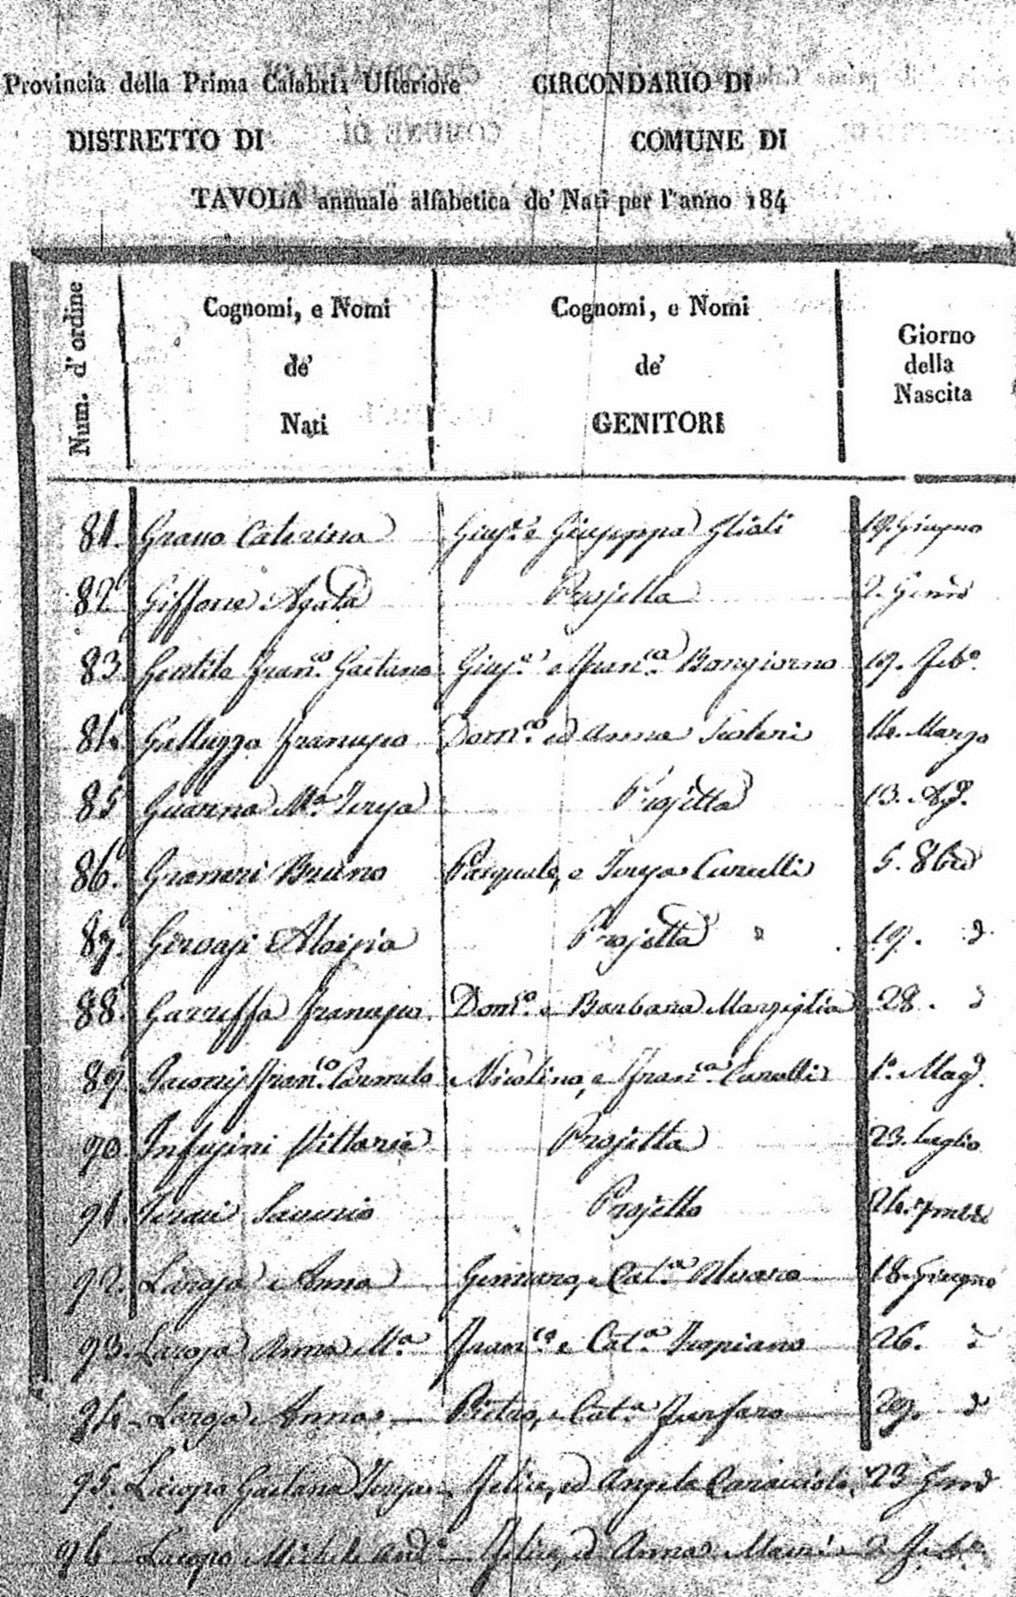 Provincia della Prima Calabria Ulteriore CIRCONDARIO DI
DISTRETTO DI COMUNE DI
TAVOLA annuale alfabetica de' Nati per l'anno 184
Num. d'ordine
Cognomi, e Nomi Cognomi, e Nomi
Giorno
de' de' della
Nascita
Nati GENITORI
81. Grano Caterina Gius.e e Giuseppa Glioti 19. Giugno
82 Giffone Agata Projetta 2. Genro
83 Gentile Fran.co Gaetano Gius.e e Fran.ca Bongiorno 19. Feb.o
84 Galluzzo Francesco Dom.co ed Anna 14. Marzo
85 Guarna M.a Teresa Projetta 13. Ag.
86. Bruno Pasquale, e Teresa 5. 8bre
87. Gervasi Aloisia Projetta " 19. d
88. Garruffa Francesco Dom.o e Barbara Marziglia 28. d
89 Fran.co Carmelo Nicolino, e Fran.ca 1.o Mag.
90. Infusini Vittoria Projetta 23. Luglio
91. Saverio Projetto 24. 7mbre
92. Laroja Anna Gennaro, e Cat.a Alvaro 18. Giugno
93. Laroja Anna M.a Fran.co e Cat.a Tropiano 26. d
94 Anna Pietro, e Cat.a Furfaro 29. d
95. Gaetana Teresa Felice, ed Angela Caracciolo 23 Genro
96 Lacopo Michele And.a Felice, ed Anna 2 Feb.o